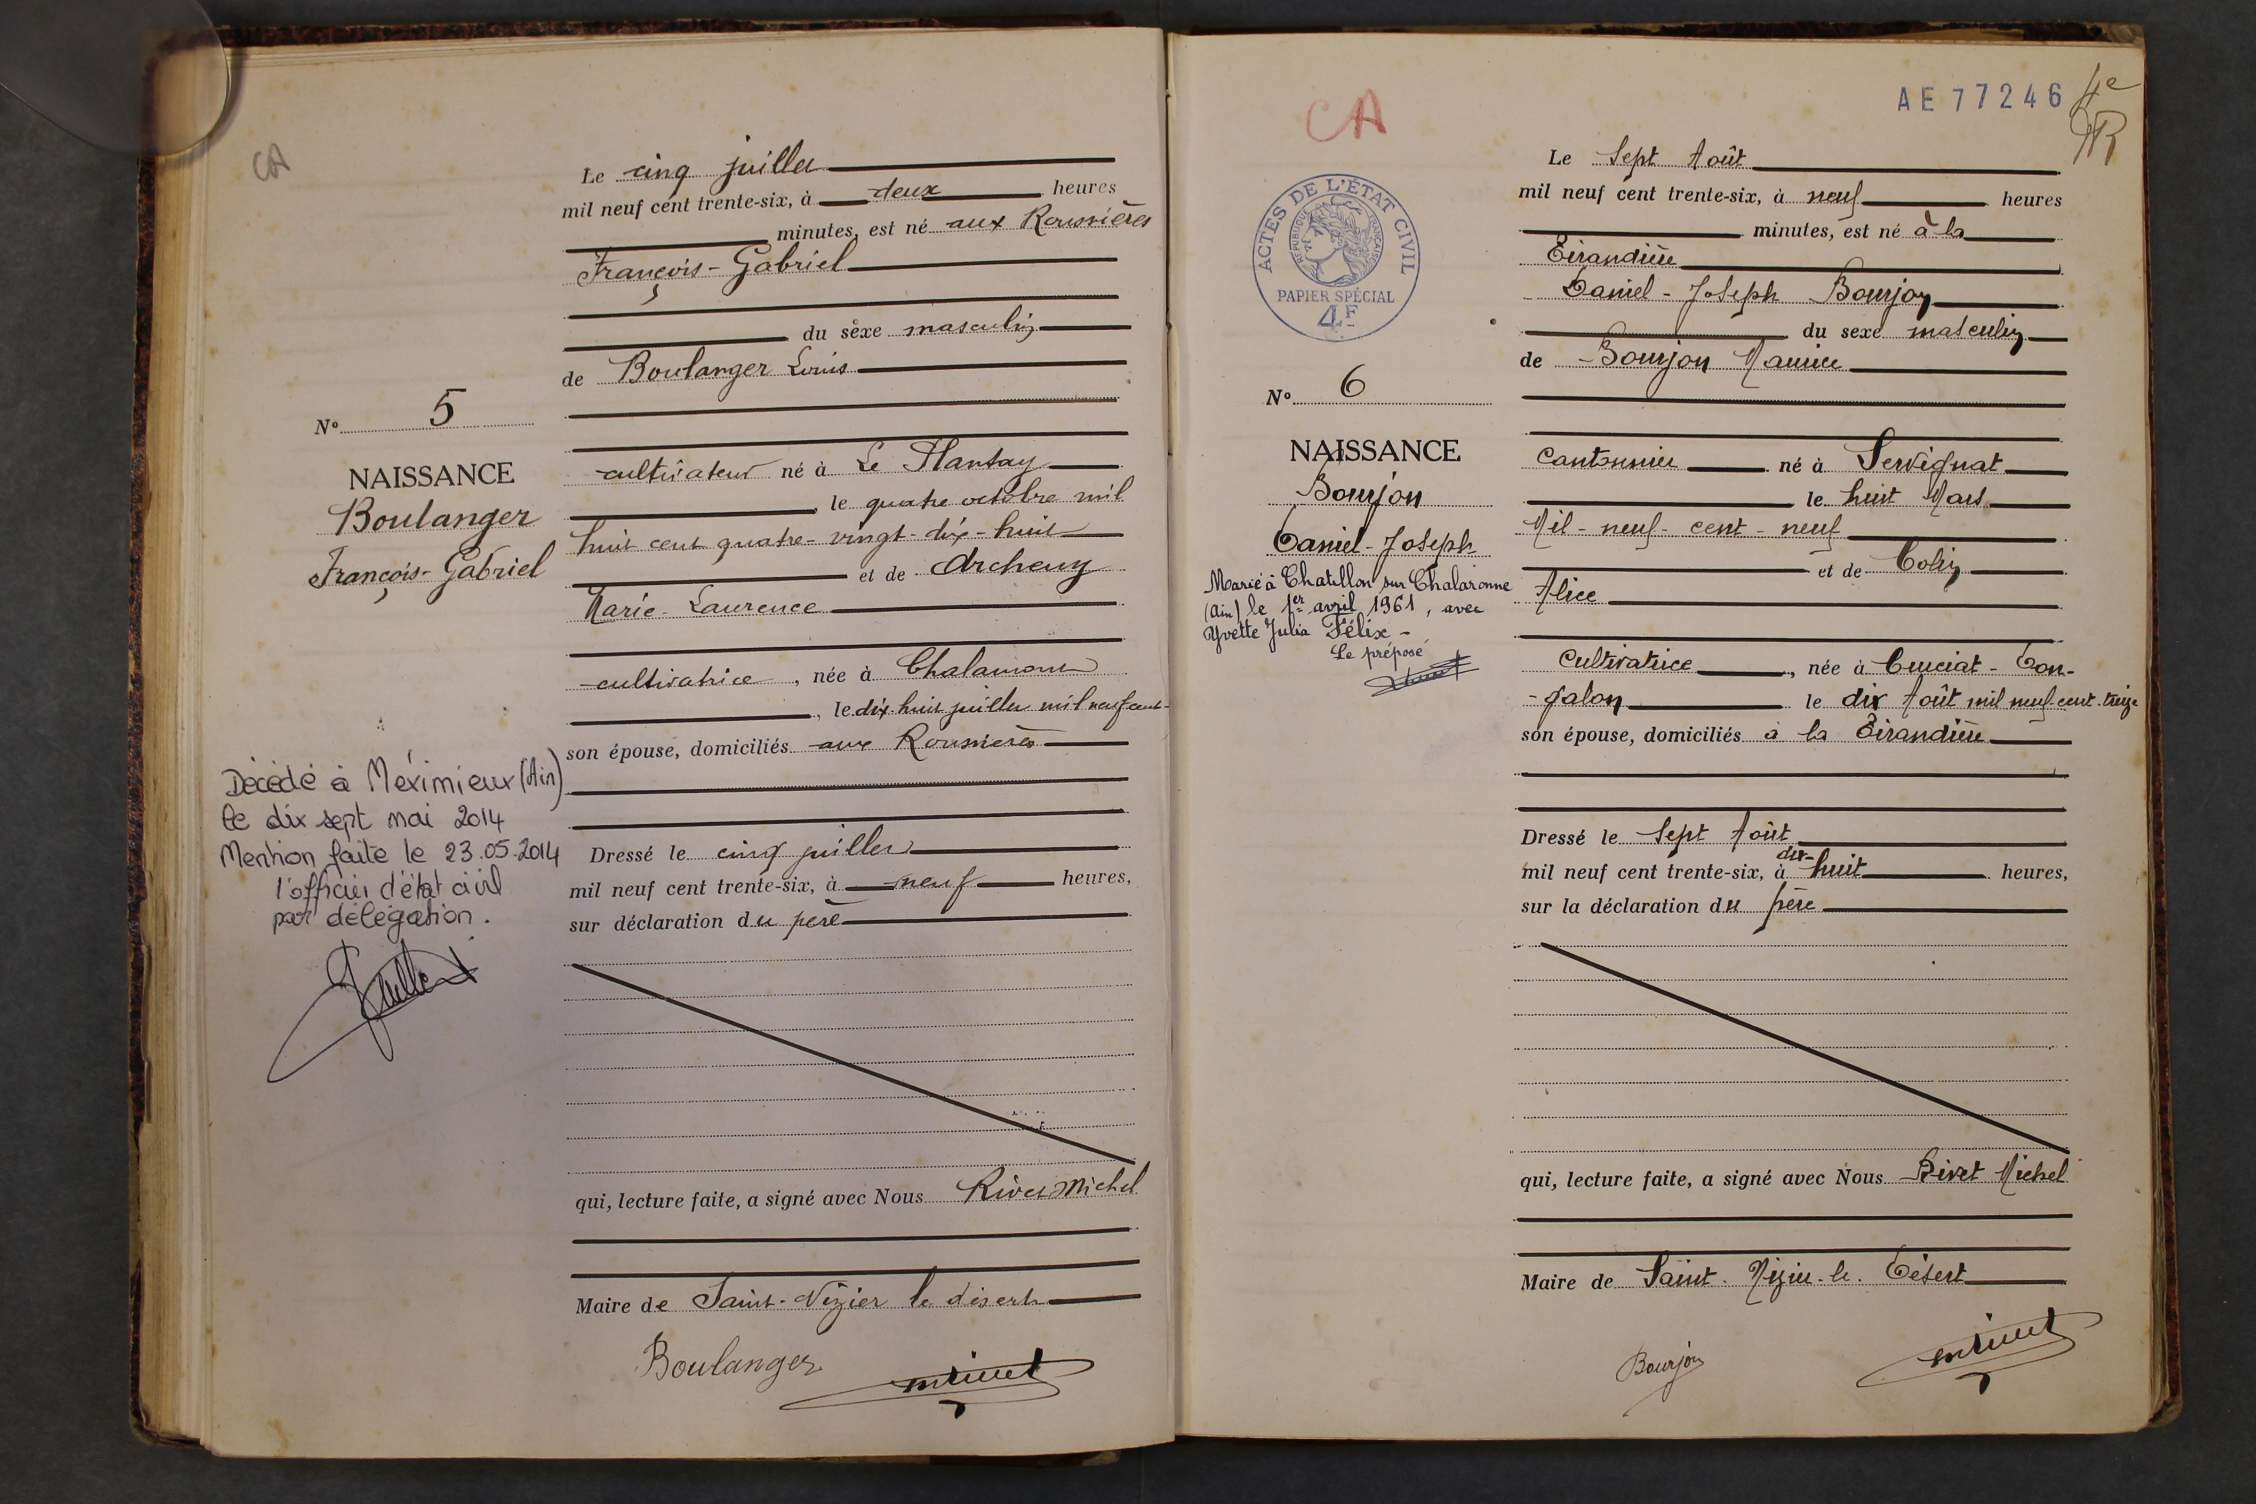 CA
Le cinq juillet
mil neuf cent trente-six, à deux heures
minutes, est né aux Roussières
François-Gabriel
du sexe masculin
de Boulanger Louis
N° 5
NAISSANCE
Boulanger
François-Gabriel
cultivateur né à Le Plantay
, le quatre octobre mil
huit cent quatre-vingt-dix-huit
et de Archeny
Marie-Laurence
cultivatrice, née à Chalamont
, le dix-huit juillet mil neuf cent-
son épouse, domiciliés aux Roussières
Décédé à Méximieux (Ain)
le dix sept mai 2014
Mention faite le 23.05.2014
l'officier d'état civil
par délégation.
Dressé le cinq juillet
mil neuf cent trente-six, à neuf heures,
sur déclaration du père
qui, lecture faite, a signé avec Nous Rivet Michel
Maire de Saint-Nizier le désert
Boulanger
mrivet
CA
AE 77246
4e
ACTES DE L'ÉTAT CIVIL
RÉPUBLIQUE FRANÇAISE
PAPIER SPÉCIAL
4F
Le Sept Août
mil neuf cent trente-six, à neuf heures
minutes, est né à la
Tirandière
Daniel-Joseph Bourjon
du sexe masculin
de Bourjon Maurice
N° 6
NAISSANCE
Bourjon
Daniel-Joseph
Marié à Chatillon sur Chalaronne
(Ain) le 1er avril 1961, avec
Yvette Julia Félix-
Le préposé
Cantonnier né à Servignat
le huit Mars
Mil-neuf-cent-neuf
et de Colin
Alice
Cultivatrice, née à Curciat-Don-
-galon le dix Août mil neuf-cent-treize
son épouse, domiciliés à la Tirandière
Dressé le Sept Août
mil neuf cent trente-six, à dix-huit heures,
sur la déclaration du père
qui, lecture faite, a signé avec Nous Rivet Michel
Maire de Saint-Nizier-le-Désert
Bourjon
mrivet